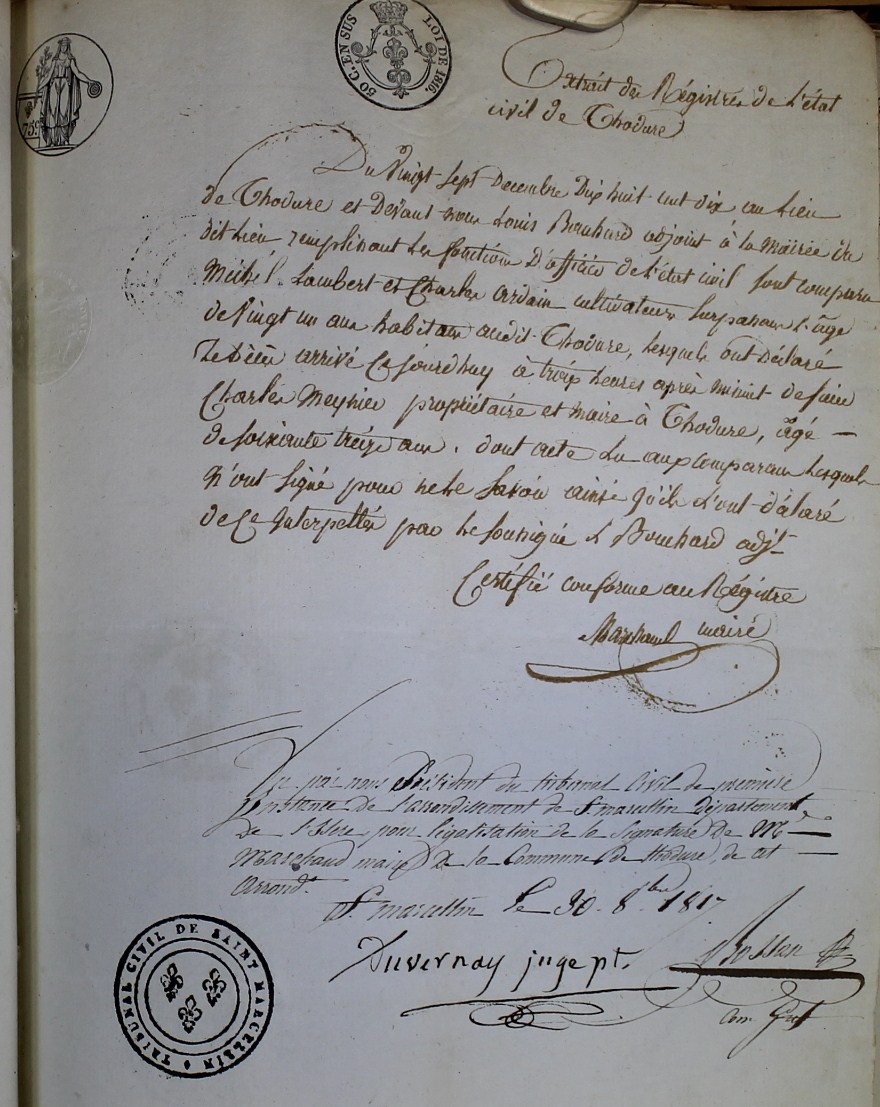 50 C. EN SUS LOI DE 1816.
75c
Extrait des Régistres de L'état
civil de Thodure
Du Vingt Sept Decembre Dix huit cent dix au Lieu
de Thodure et Devant nous Louis Bouchard adjoint à la Mairie du
dit Lieu remplissant les fonctions D'officier de L'état civil sont comparu
Michel Lambert et Charles Ardain cultivateurs Surpassant L'âge
de Vingt un ans habitans audit Thodure, lesquels ont déclaré
Le décès arrivé Cejourdhuy à trois heures après minuit de feu
Charles Meynier propriétaire et maire à Thodure, âgé —
de soixante treize ans. dont acte Lu aux comparans lesquels
N'ont Signé pour ne le Savoir ainsi qu'ils L'ont déclaré
de Ce Interpellés par le soussigné L Bouchard adjt
Certifié conforme au Régistre
Marchand maire
Vu par nous Président du tribunal Civil de première
instance de l'arrondissement de St marcellin Département
de l'Isere pour légalisation de la Signature de Mr
Marchand maire de la Commune de thodure, de cet —
Arrondt
St marcellin Le 30. 8bre 1817
Duvernay juge pt.
TRIBUNAL CIVIL DE SAINT MARCELLIN